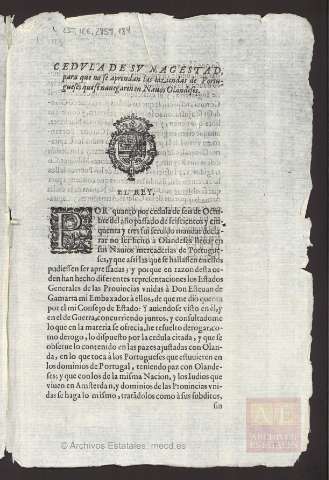 CEDULA DE SV MAGESTAD,
para que no se aprendan las haziendas de Portu-
gueses que se nauegaren en Nauios Olandeses.
EL REY.
POR quanto por cedula de seis de Octu-
bre del año passado de seiscientos y cin-
quenta y tres fui seruido mandar decla-
rar no ser licito à Olandeses lleuar en
sus Nauios mercaderias de Portugue-
ses, y que assi las que se hallassen en ellos
pudiessen ser apressadas; y porque en razon desta or-
den han hecho diferentes representaciones los Estados
Generales de las Prouincias vnidas à Don Esteuan de
Gamarra mi Embaxador à ellos, de que me dio quenta
por el mi Consejo de Estado: Y auiendose visto en èl, y
en el de Guerra, concurriendo juntos, y consultadome
lo que en la materia se ofrecia, he resuelto derogar, co-
mo derogo, lo dispuesto por la cedula citada, y que se
obserue lo contenido en las pazes ajustadas con Olan-
da, en lo que toca à los Portugueses que estuuieren en
los dominios de Portugal, teniendo paz con Olande-
ses; y que con los de la misma Nacion, y los Iudios que
viuen en Amsterdan, y dominios de las Prouincias vni-
das se haga lo mismo, tratādolos como à sus subditos,
sin
AE
ARCHIVOS
ESTATALES
© Archivos Estatales, mecd.es